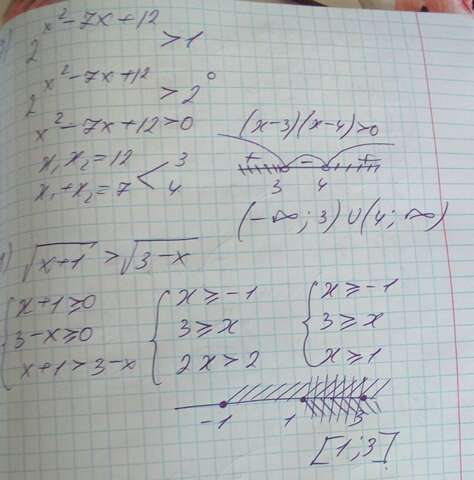 2^(x²-7x+12) > 1
2^(x²-7x+12) > 2⁰
x²-7x+12>0
x₁x₂=12
x₁+x₂=7 < 3 4
(x-3)(x-4)>0
+ - +
3 4
(-∞; 3) ∪ (4; ∞)
√(x+1) > √(3-x)
{ x+1≥0
3-x≥0
x+1>3-x
{ x≥-1
3≥x
2x>2
{ x≥-1
3≥x
x≥1
-1 1 3
[1;3]